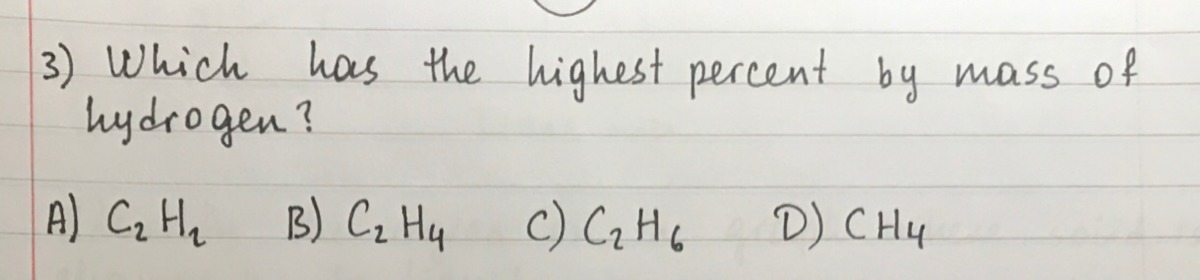 3) Which has the highest percent by mass of
hydrogen?
A) C₂H₂ B) C₂H₄ C) C₂H₆ D) CH₄